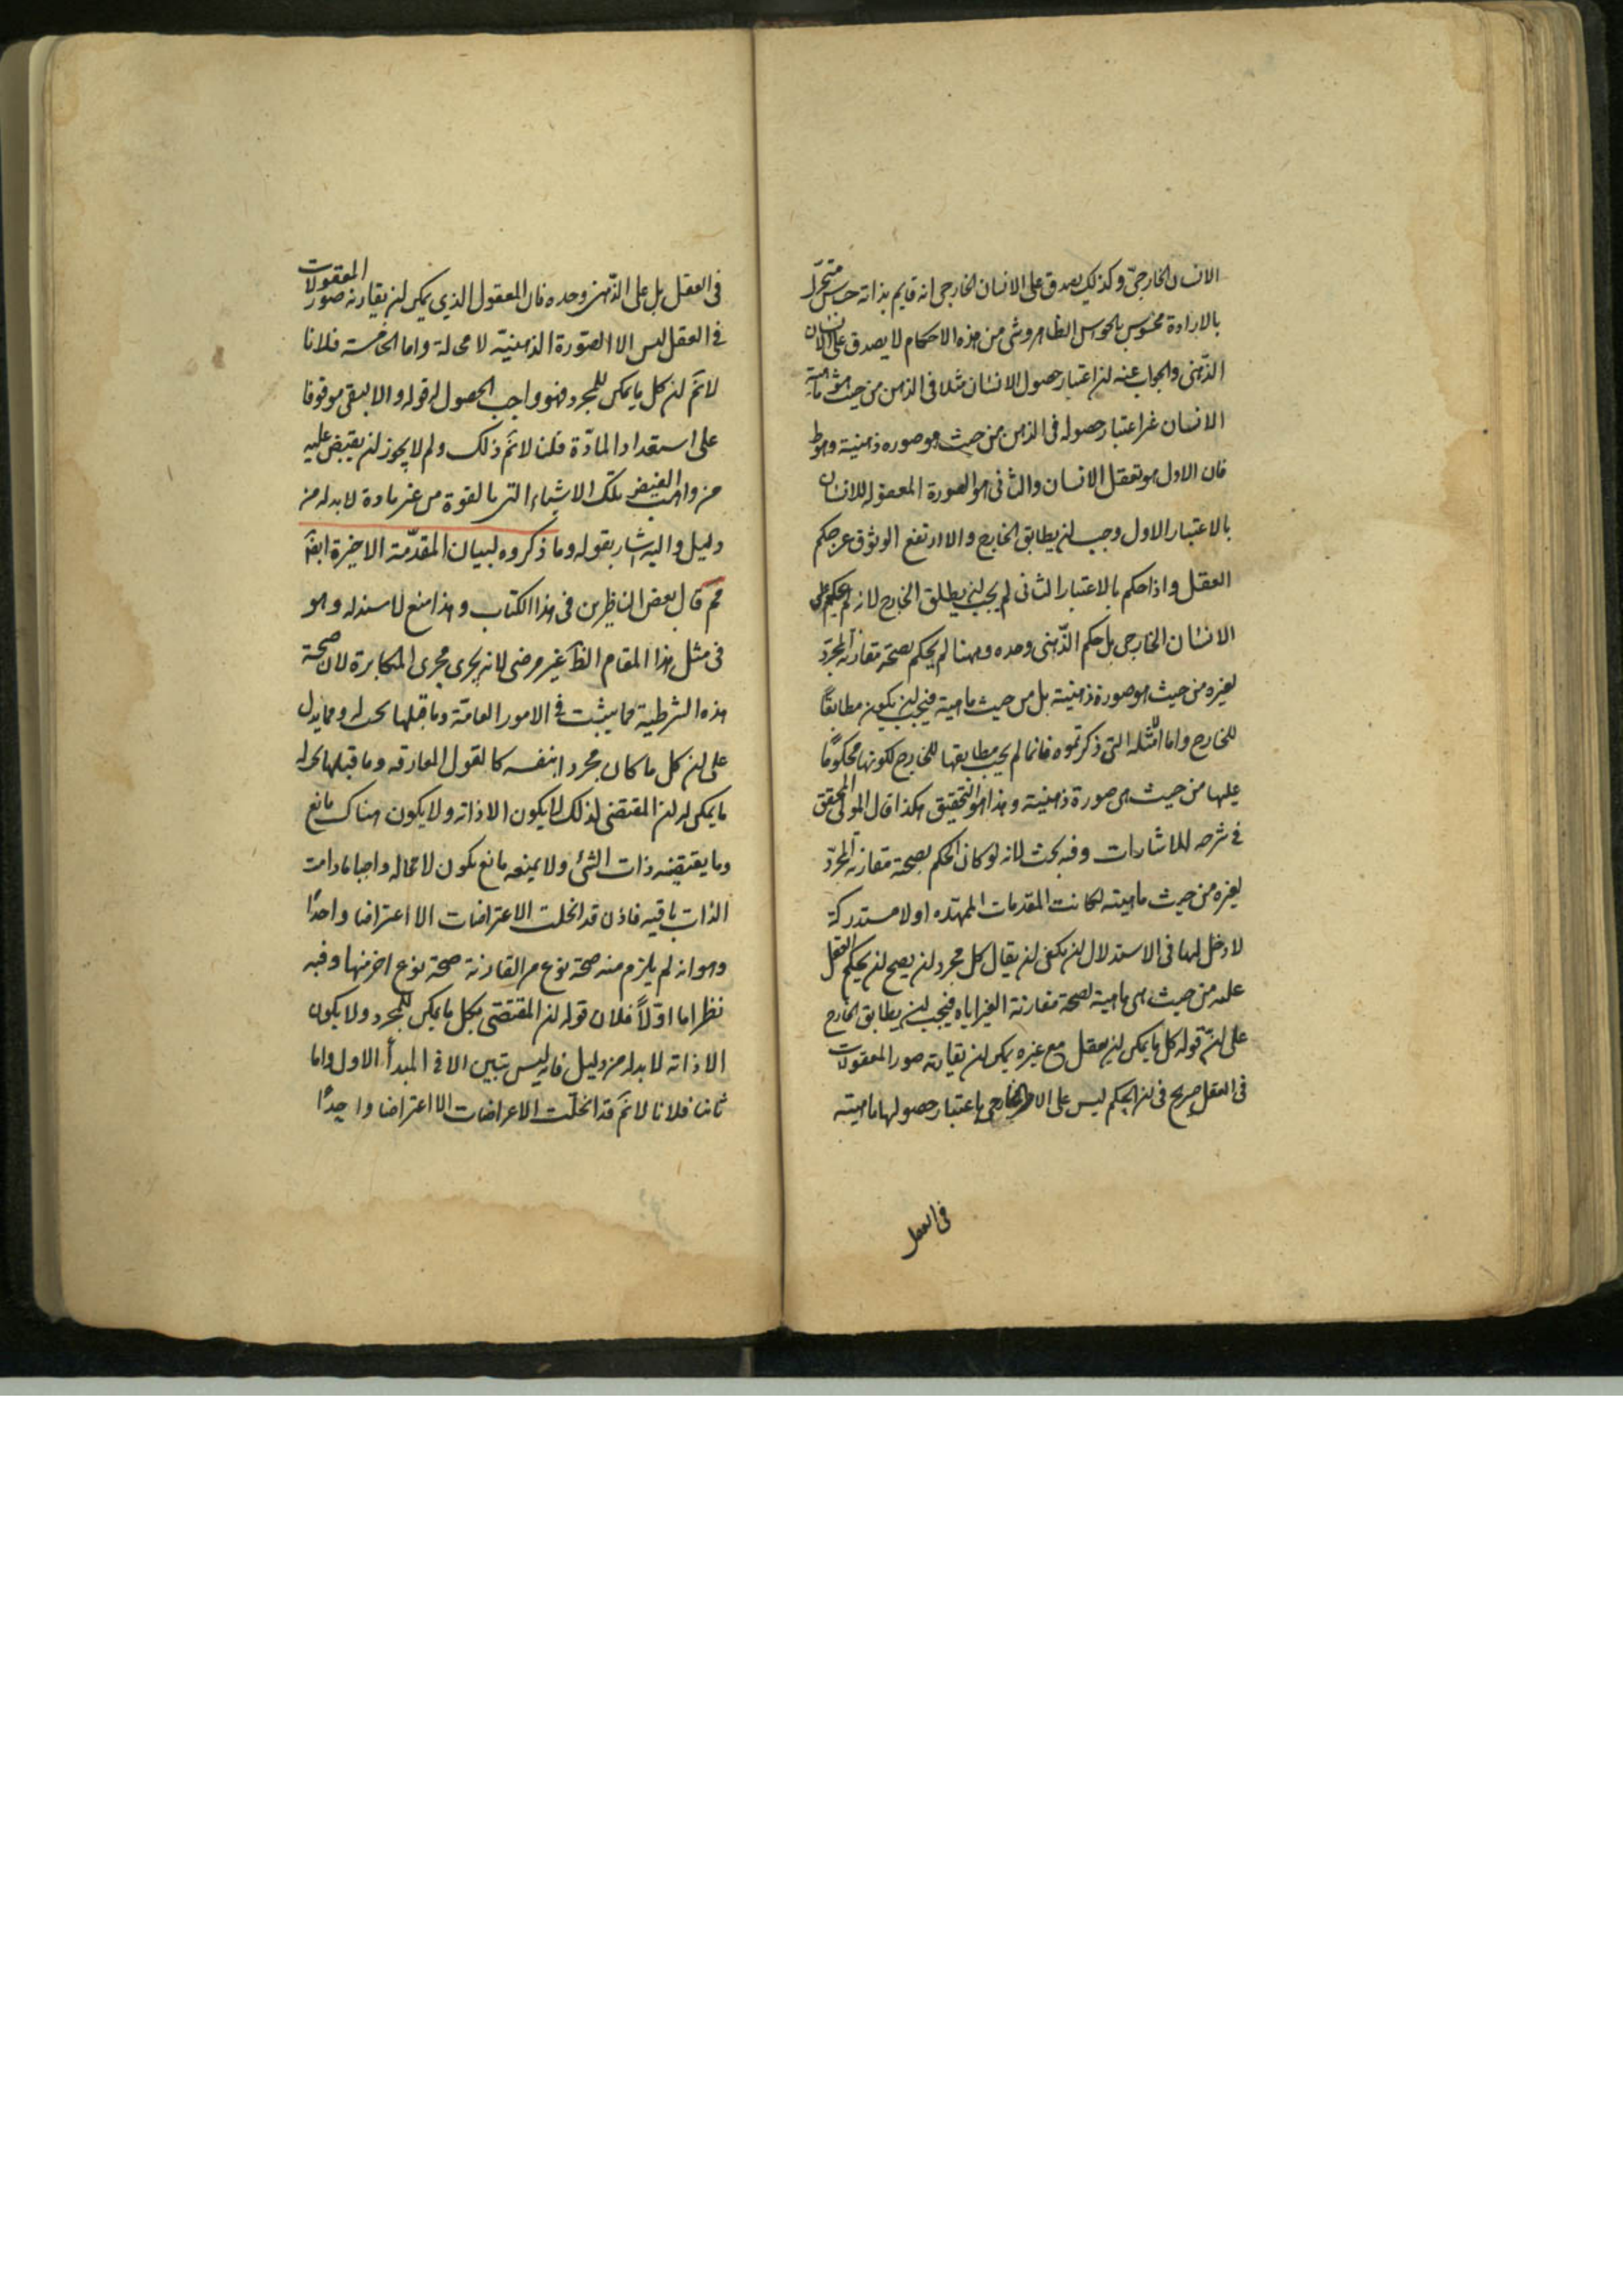 الانسان الخارجى وكذلك يصدق على الانسان الخارجى انه قايم بذاته حساس متحرك
بالارادة محسوس بالحواس الظاهر وشى من هذه الاحكام لا يصدق على الانسان
الذهنى والجواب عنه ان اعتبار حصول الانسان مثلا فى الذهن من حيث هو ماهية
الانسان غير اعتبار حصوله فى الذهن من حيث هو صوره ذهنية
فان الاول هو تعقل الانسان والثانى هو الصورة المعقوله للانسان
بالاعتبار الاول وجب ان يطابق الخارج والا ارتفع الوثوق عن حكم
العقل واذا حكم بالاعتبار الثانى لم يجب ان يطابق الخارج لانه لم يحكم على
الانسان الخارجى بل حكم الذهنى وحده وههنا لم يحكم بصحة مقارنة المجرد
لغيره من حيث هو صورة ذهنية بل من حيث ماهية فيجب ان يكون مطابقًا
للخارج واما الامثله التى ذكرتموه فانما لم يجب مطابقها للخارج لكونها محكومًا
عليها من حيث هى صورة ذهنية وهذا هو التحقيق هكذا قال المولى المحقق
فى شرحه للاشارات وفيه بحث لانه لو كان الحكم بصحة مقارنة المجرد
لغيره من حيث ماهيته لكانت المقدمات الممهده اولا مستدركة
لا دخل لها فى الاستدلال ان يكفى ان يقال كل مجرد ان يصح ان يحكم العقل
عليه من حيث هى ماهية لصحة مقارنة الغير اياه فيجب ان يطابق الخارج
على ان قوله كل ما يمكن ان يعقل مع غيره يمكن ان يقارنه صور المعقولات
فى العقل صريح فى ان الحكم ليس على الامر الخارجى باعتبار حصولها ماهيته
فى العقل
فى العقل بل على الذهن وحده فان المعقول الذي يمكن ان يقارنه صور المعقولات
فى العقل ليس الا الصورة الذهنية لا محالة واما الخامسة فلانا
لانم ان كل ما يمكن للمجرد فهو واجب الحصول له قوله والا لبقى موقوفا
على استعداد المادة قلنا لانم ذلك ولم لا يجوز ان يقتبض عليه
من واهب الفيض تلك الاشياء التى بالقوة من غير مادة لا بد له من
دليل واليه اشار بقوله وما ذكروه لبيان المقدمة الاخيرة ايضًا
مم قال بعض الناظرين فى هذا الكتاب وهذا منع لا سند له وهو
فى مثل هذا المقام الظ غير مرضى لانه يجرى مجرى المكابرة لان صحة
هذه الشرطية مما يثبت فى الامور العامة وما قبلها بحث له ومما يدل
على ان كل ما كان مجردا بنفسه كالعقول المفارقه وما قبلها بحث له
ما يمكن له ان المقتضى لذلك لا يكون الا ذاته ولا يكون هناك مانع
وما يقتضيه ذات الشئ ولا يمنعه مانع يكون لا محاله واجبا مادامت
الذات باقيه فاذن قد انحلت الاعتراضات الا اعتراضا واحدًا
وهو انه لم يلزم منه صحة نوع من المقارنة صحة نوع اخر منها وفيه
نظر اما اولًا فلان قوله ان المقتضى بكل ما يمكن للمجرد ولا يكون
الا ذاته لا بد له من دليل فانه ليس يتبين الا فى المبدأ الاول واما
ثانيا فلانا لانم قد انحلت الاعراضات الا اعتراضا واحدًا